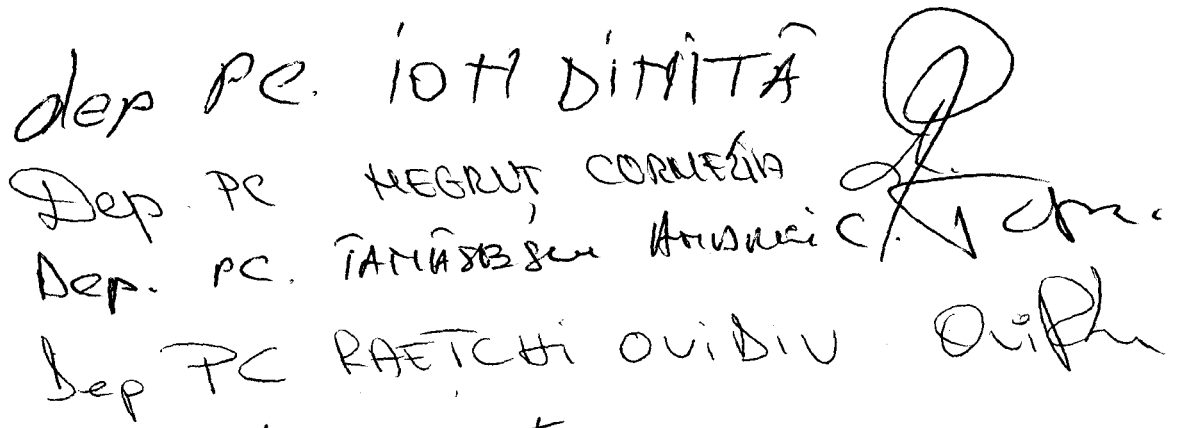 dep PC. ION DINIȚĂ
Dep. PC NEGRUȚ CORNELIA
Dep. PC. TĂMĂSESCU ANDREI C.
Dep PC RAEȚCHI OVIDIU